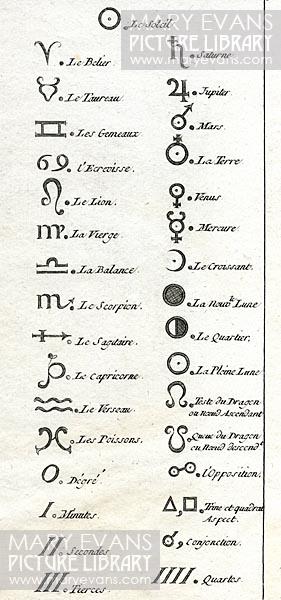 Le Soleil
MARY EVANS
PICTURE LIBRARY
www.maryevans.com
Le Belier
Le Taureau
Les Gemeaux
l'Ecrevisse.
Le Lion.
La Vierge
La Balance
Le Scorpion
Le Sagitaire.
Le Capricorne
Le Verseau
Les Poissons.
Degré
Minutes
Secondes
Tierces
Saturne
Jupiter
Mars.
La Terre
Venus
Mercure
Le Croissant.
La Nouv.le Lune
Le Quartier.
La Pleine Lune
Teste du Dragon
ou Nœud Ascendant
Queue du Dragon
ou Nœud descend.t
l'Opposition.
Trine et quadrat
Aspect.
Conjonction.
Quartes
MARY EVANS
PICTURE LIBRARY
www.maryevans.com